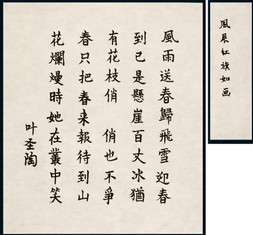 風展红旗如画
風雨送春歸飛雪迎春
到已是懸崖百丈冰猶
有花枝俏 俏也不爭
春只把春来報待到山
花爛熳時她在叢中笑
叶圣陶